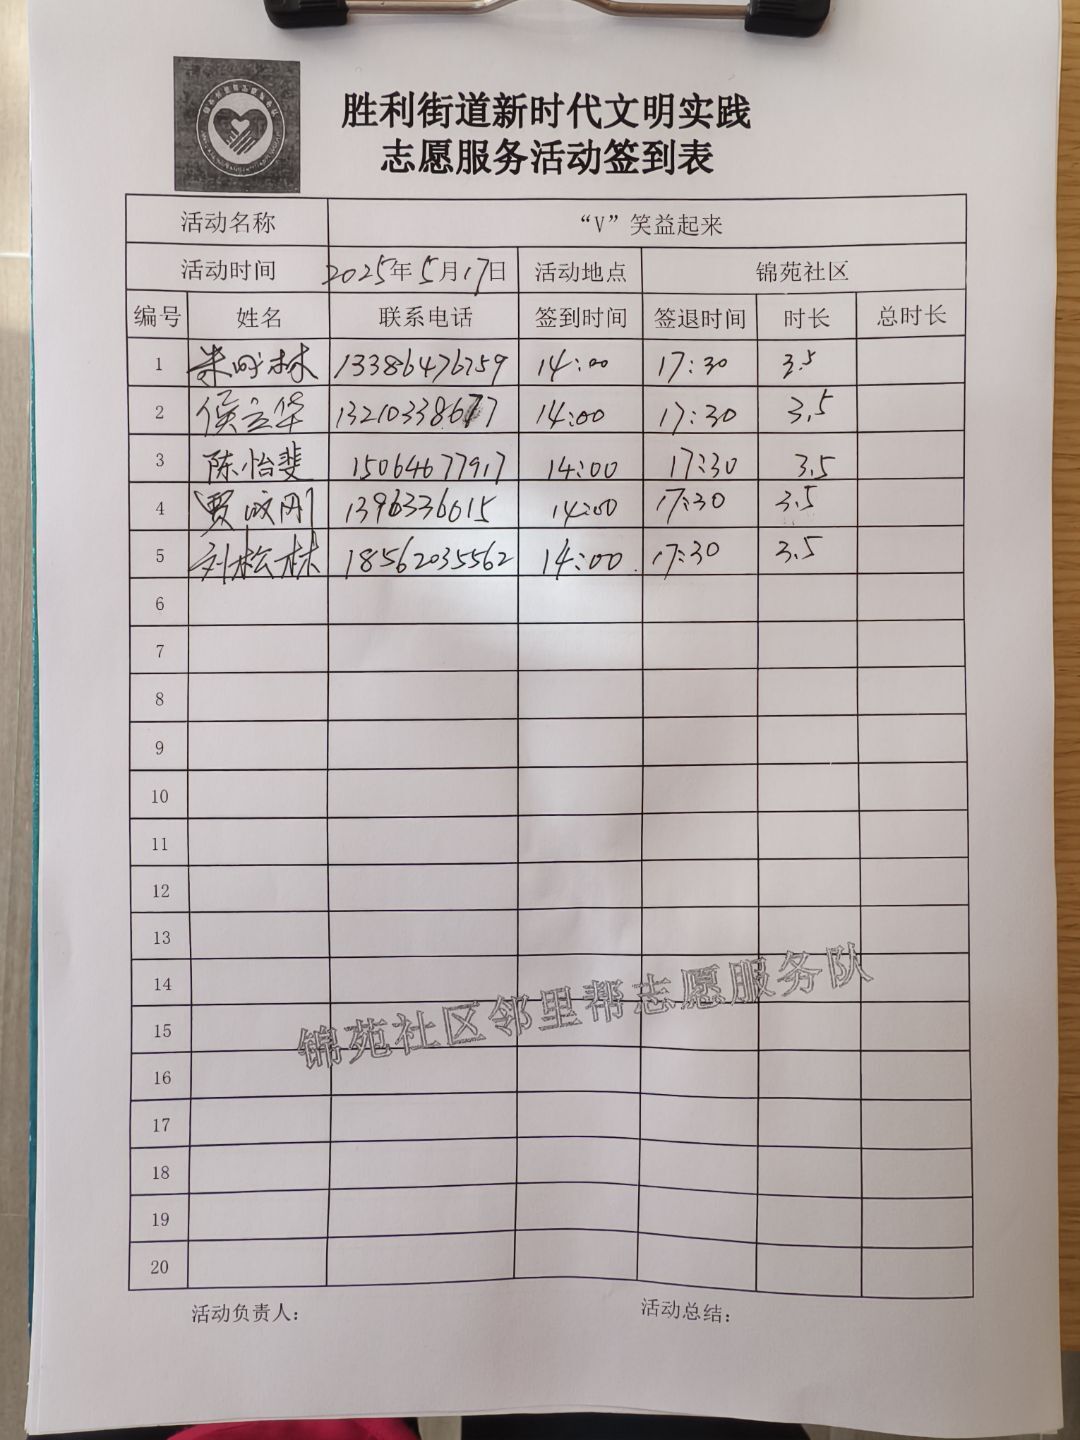 胜利街道新时代文明实践
志愿服务活动签到表
活动名称 “V”笑益起来
活动时间 2025年5月17日 活动地点 锦苑社区
编号 姓名 联系电话 签到时间 签退时间 时长 总时长
1 林 13386476759 14:00 17:30 3.5
2 侯立华 13210338677 14:00 17:30 3.5
3 陈怡斐 15064677917 14:00 17:30 3.5
4 贾 刚 1396336615 14:00 17:30 3.5
5 刘松林 18562035562 14:00 17:30 3.5
6
7
8
9
10
11
12
13
14
15
16
17
18
19
20
锦苑社区邻里帮志愿服务队
活动负责人： 活动总结：